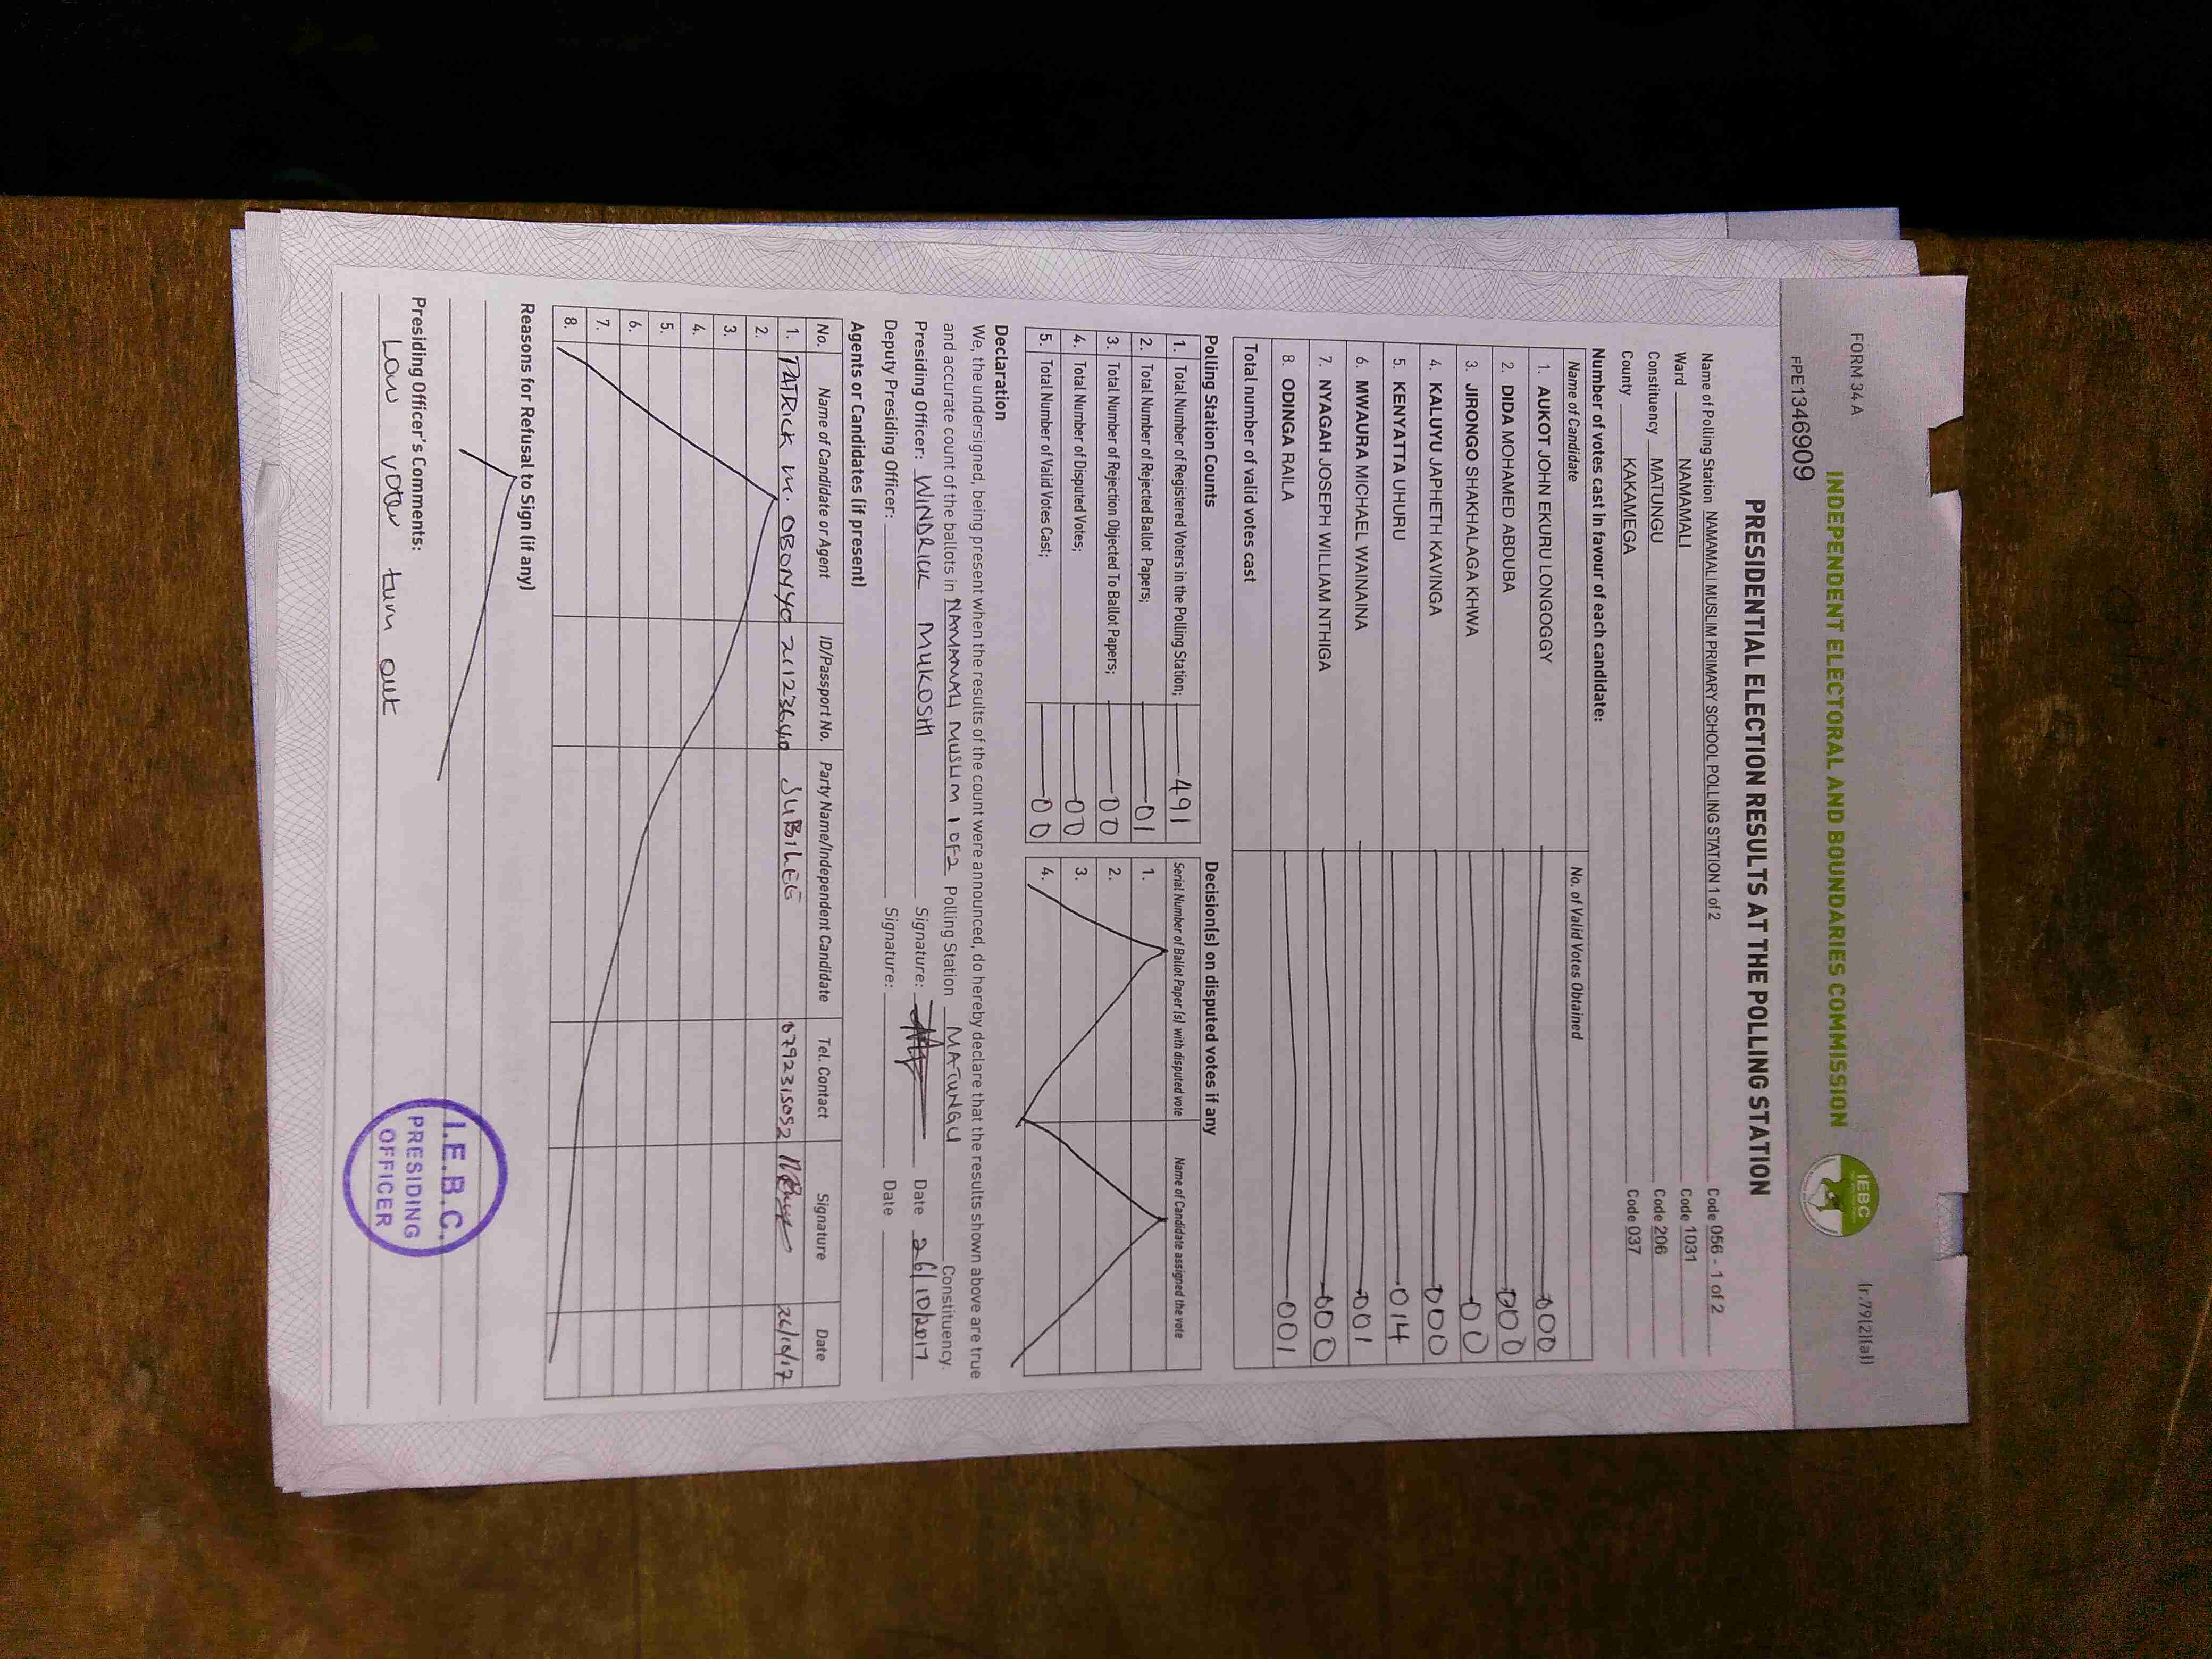 FORM 34 A
(r.79(2)(a))
INDEPENDENT ELECTORAL AND BOUNDARIES COMMISSION
IEBC
FPE1346909
PRESIDENTIAL ELECTION RESULTS AT THE POLLING STATION
Name of Polling Station NAMAMALI MUSLIM PRIMARY SCHOOL POLLING STATION 1 of 2 Code 056 - 1 of 2
Ward NAMAMALI Code 1031
Constituency MATUNGU Code 206
County KAKAMEGA Code 037
Number of votes cast in favour of each candidate:
Name of Candidate No. of Valid Votes Obtained
1. AUKOT JOHN EKURU LONGOGGY 000
2. DIDA MOHAMED ABDUBA 000
3. JIRONGO SHAKHALAGA KHWA 00
4. KALUYU JAPHETH KAVINGA 000
5. KENYATTA UHURU 014
6. MWAURA MICHAEL WAINAINA 001
7. NYAGAH JOSEPH WILLIAM NTHIGA 000
8. ODINGA RAILA 001
Total number of valid votes cast
Polling Station Counts
1. Total Number of Registered Voters in the Polling Station; 491
2. Total Number of Rejected Ballot Papers; 01
3. Total Number of Rejection Objected To Ballot Papers; 00
4. Total Number of Disputed Votes; 00
5. Total Number of Valid Votes Cast; 00
Decision(s) on disputed votes if any
Serial Number of Ballot Paper (s) with disputed vote Name of Candidate assigned the vote
1.
2.
3.
4.
Declaration
We, the undersigned, being present when the results of the count were announced, do hereby declare that the results shown above are true
and accurate count of the ballots in NAMAMALI MUSLIM 1 OF 2 Polling Station MATUNGU Constituency.
Presiding Officer: WINDRICK MUKOSHI Signature: Date 26/10/2017
Deputy Presiding Officer: Signature: Date
Agents or Candidates (if present)
No. Name of Candidate or Agent ID/Passport No. Party Name/Independent Candidate Tel. Contact Signature Date
1. PATRICK M. OBONYO 21123640 JUBILEE 0792315052 26/10/17
2.
3.
4.
5.
6.
7.
8.
Reasons for Refusal to Sign (if any)
Presiding Officer's Comments:
Low voter turn out
I.E.B.C.
PRESIDING
OFFICER